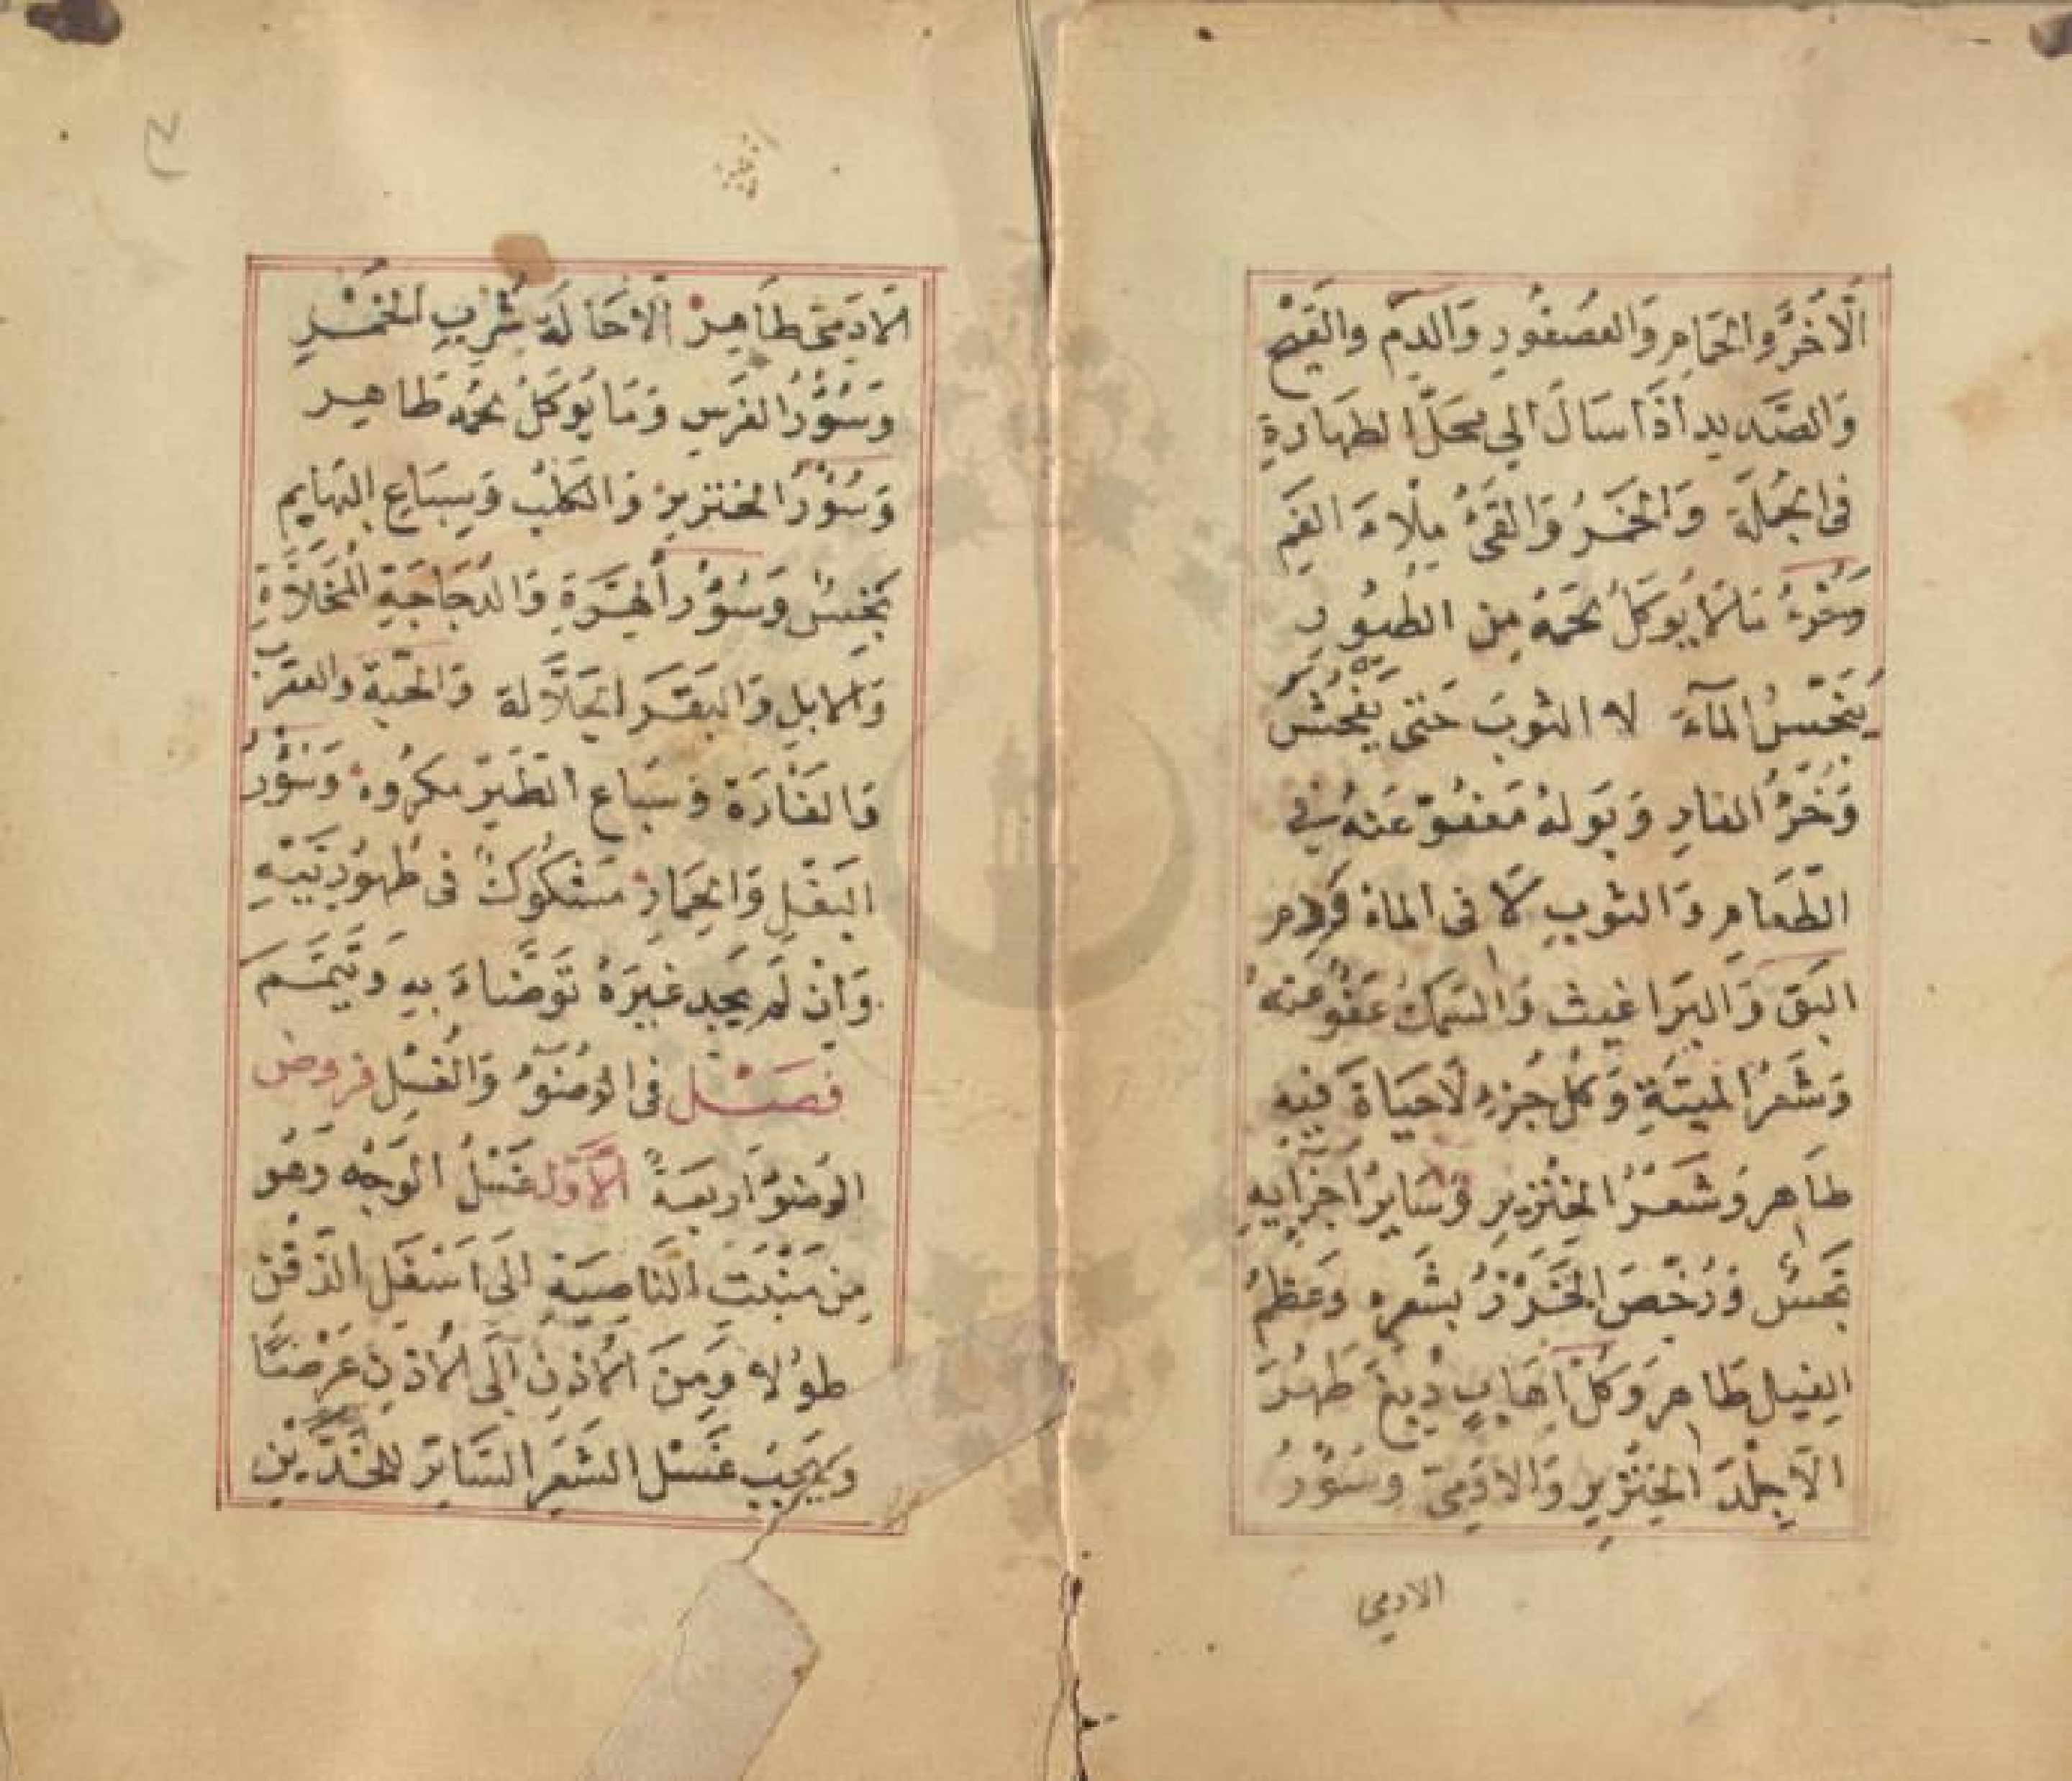 اِلَّا خُرْءَ الحَمَامِ وَالعُصْفُورِ وَالدَّمِ وَالقَيْحِ
وَالصَّدِيدِ اِذَا سَالَ اِلى مَحَلِّ الطَهَارَةِ
فى الجُمْلَةِ وَالخَمْرُ وَالقَىْءُ مِلْاءَ الفَمِ
وَخُرْءُ مَا لَا يُوكَلُ لَحْمُهُ مِنَ الطُيُورِ
يُنَجِّسُ المَآءَ لا الثَوبَ حَتى يَفْحُشَ
وَخُرْءُ الفَارِ وَبَولُهُ مَعْفُوٌّ عَنْهُ فى
الطَّعَامِ وَالثَوبِ لَا فى المَاءِ وَدَمُ
البَقِّ وَالبَرَاغيثِ وَالسَمَكِ عَفْوٌ عَنْهُ
وَشَعْرُ المَيتَةِ وَكُلُّ جُزءٍ لَا حَيَاةَ فيهِ
طَاهِر وَشَعْرُ الخِنْزيرِ وَسَايِرُ اَجْزَايِهِ
نَجَسٌ وَرُخِّصَ الخَرْزُ بِشَعْرِهِ وَعَظْمُ
الفِيلِ طَاهِر وَكُلُّ اِهَابٍ دُبِغَ طَهُرَ
اِلَّا جِلْدَ الخِنْزِيرِ وَالادَمِىِّ وَسُؤْرُ
الادمى
الَادَمِىِّ طَاهِرٌ اِلَّا حَالَةَ شُرْبِ الخَمْرِ
وَسُؤْرُ الفَرَسِ وَمَا يُوكَلُ لَحْمُهُ طَاهِر
وَسُؤْرُ الخنزيرِ وَالكَلْبِ وَسِبَاعِ البَهَايِمِ
نَجِسٌ وَسُؤْرُ الهِرَّةِ وَالدَجَاجَةِ المُخَلَّاةِ
وَالابِلِ وَالبَقَرِ الجَلَّالَة وَالحَيَّةِ وَالعَقْرَبِ
وَالفَارَةِ وَسِبَاعِ الطَيْرِ مكرُوهٌ وَسُؤْرُ
البَغْلِ وَالحِمَارِ مَشْكُوكٌ فى طَهُورِيَّتِهِ
وَاِنْ لَمْ يَجِدْ غَيْرَهُ تَوَضَّاءَ بِهِ وَتَيَمَّمَ
فَصْل فى الوُضُوءِ وَالغُسْلِ فروض
الوُضُوءِ اَربَعَةٌ الاَوَّل غَسْلُ الوَجْهِ وَهُو
مِن مَنْبَتِ النَاصِيَةِ اِلَى اَسْفَلِ الذَّقْنِ
طُولا وَمِنَ الاُذنِ اِلَى الاُذنِ عَرْضًا
وَيَجِبُ غَسْلُ الشَعَرِ السَّاتِرِ لِلخَدَّيْنِ